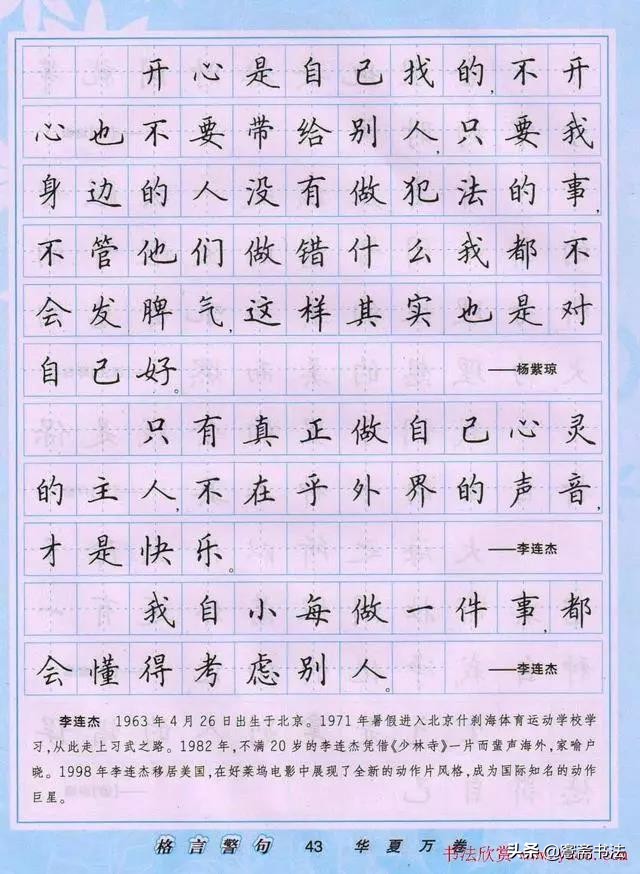 开心是自己找的,不开
心也不要带给别人,只要我
身边的人没有做犯法的事,
不管他们做错什么我都不
会发脾气,这样其实也是对
自己好。 ——杨紫琼
只有真正做自己心灵
的主人,不在乎外界的声音,
才是快乐。 ——李连杰
我自小每做一件事,都
会懂得考虑别人。 ——李连杰
李连杰 1963年4月26日出生于北京。1971年暑假进入北京什刹海体育运动学校学
习,从此走上习武之路。1982年,不满20岁的李连杰凭借《少林寺》一片而蜚声海外,家喻户
晓。1998年李连杰移居美国,在好莱坞电影中展现了全新的动作片风格,成为国际知名的动作
巨星。
格言警句 43 华夏万卷
书法欣赏
头条 @鸾斋书法